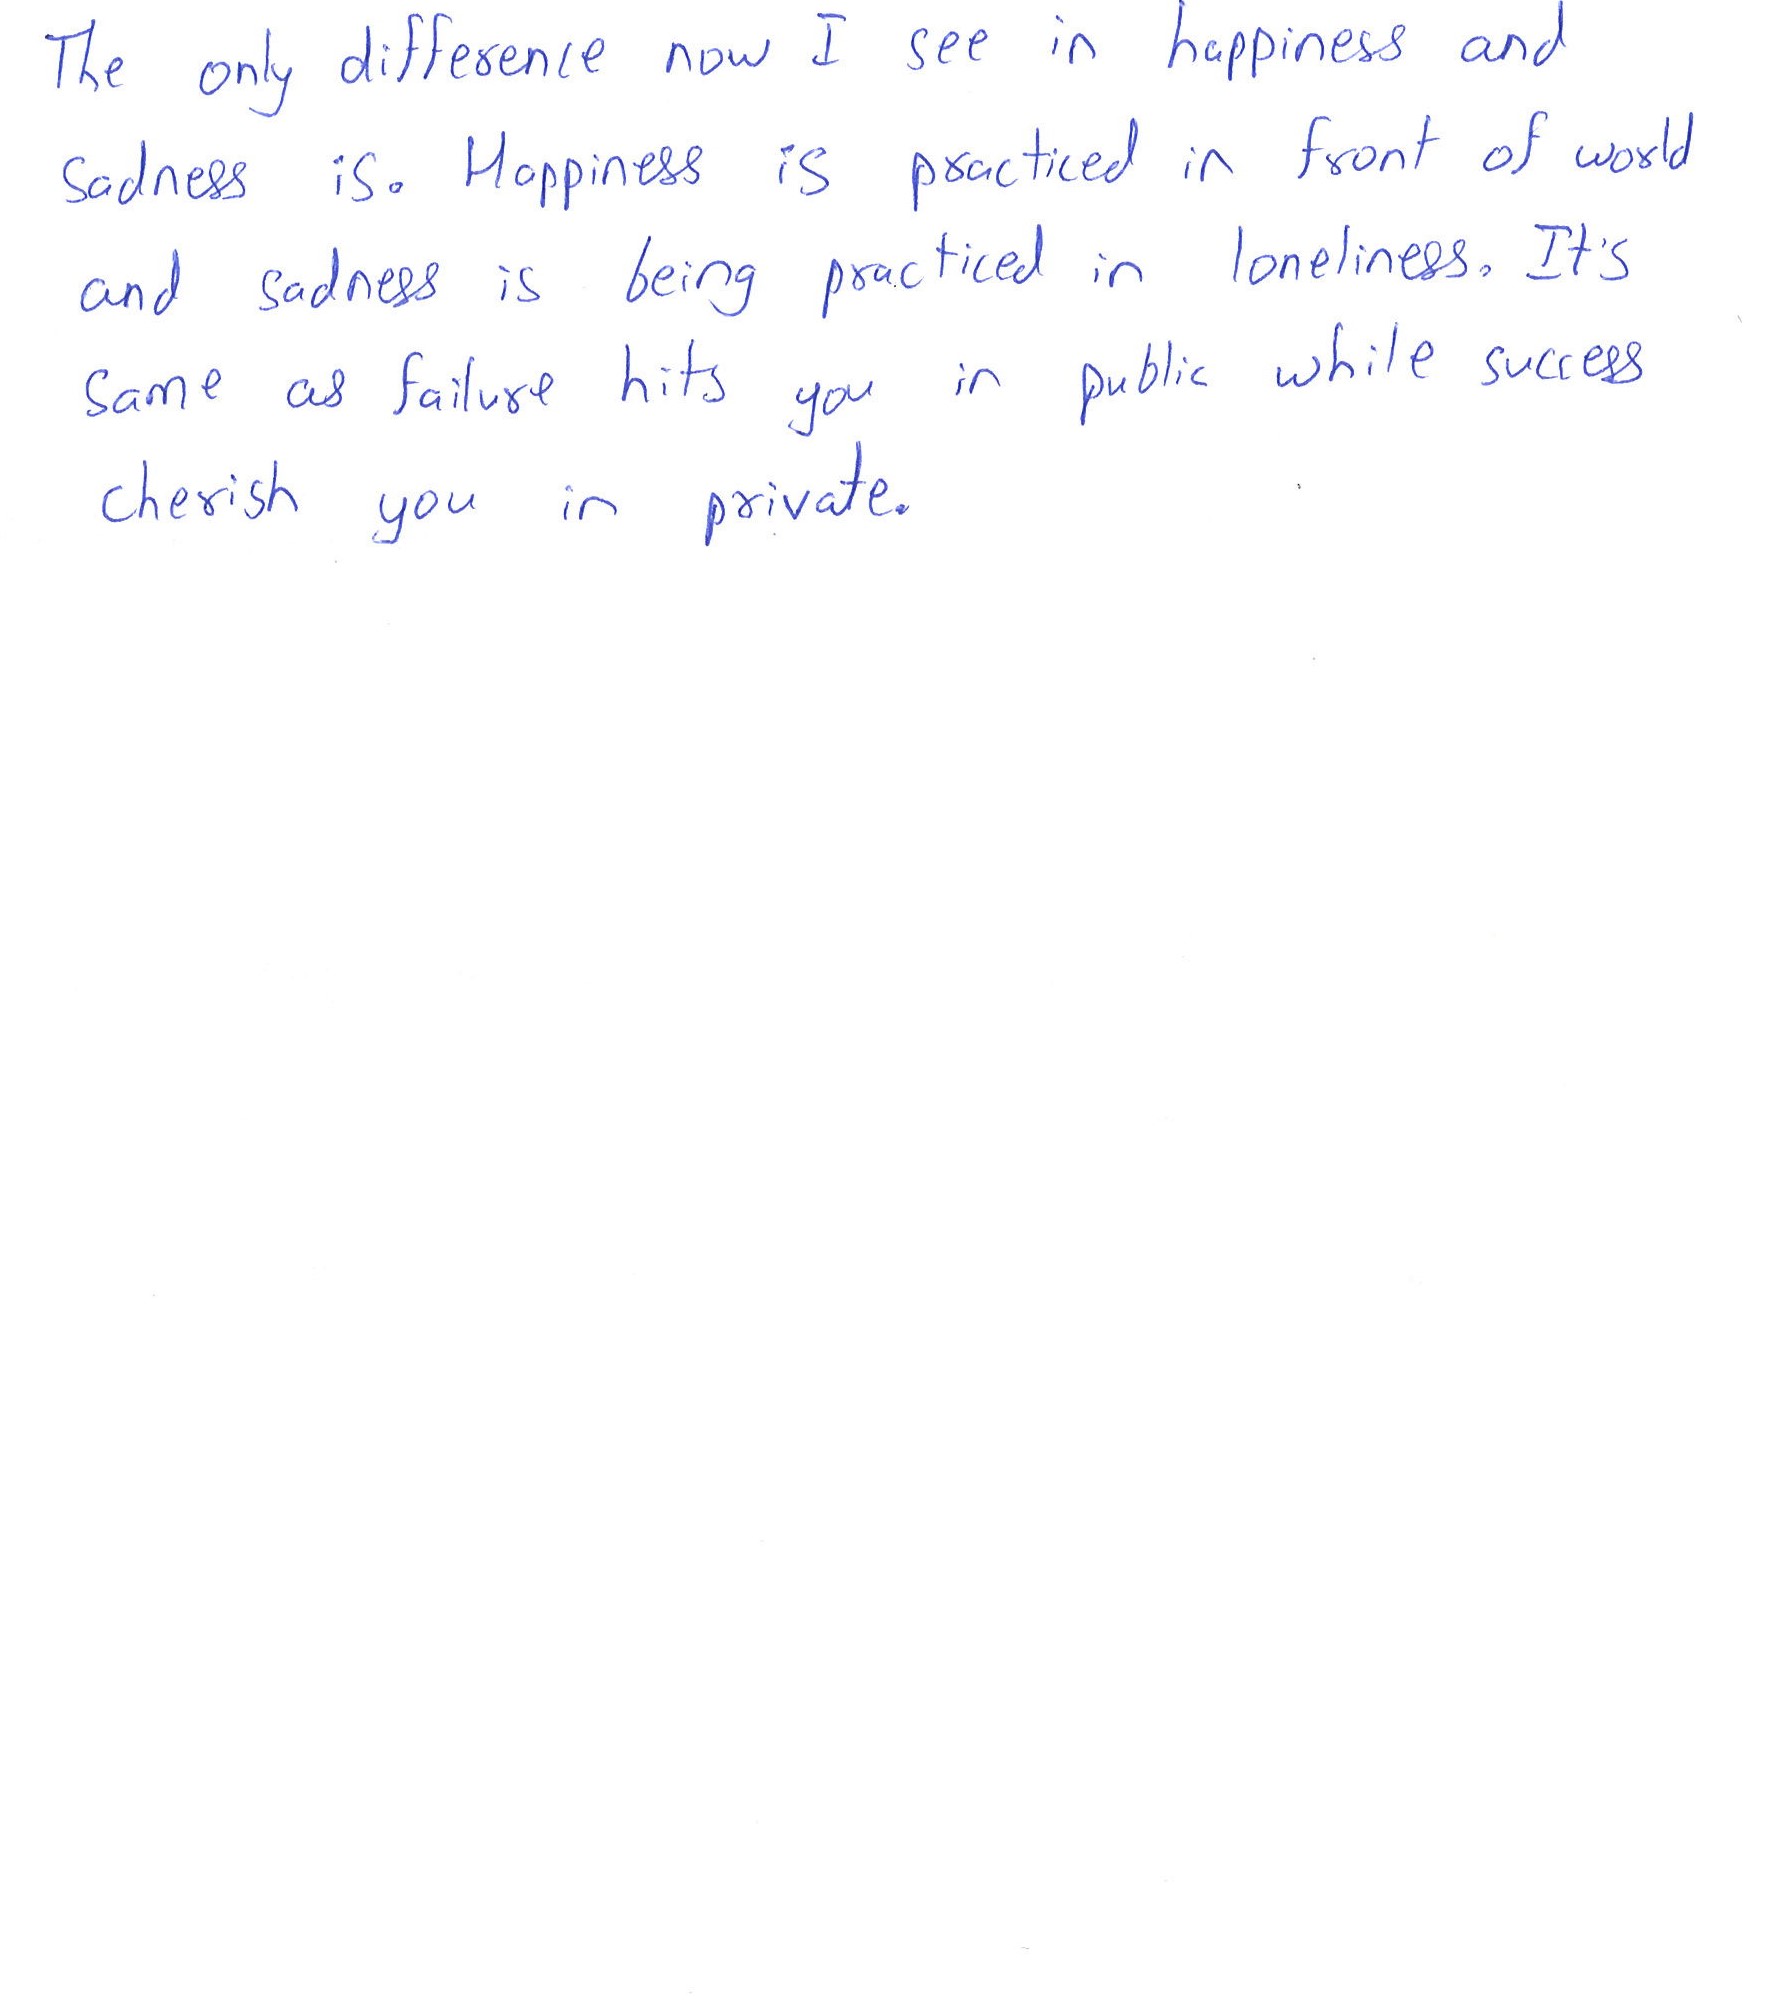 The only difference now I see in happiness and
sadness is. Happiness is practiced in front of world
and sadness is being practiced in loneliness. It's
same as failure hits you in public while success
cherish you in private.